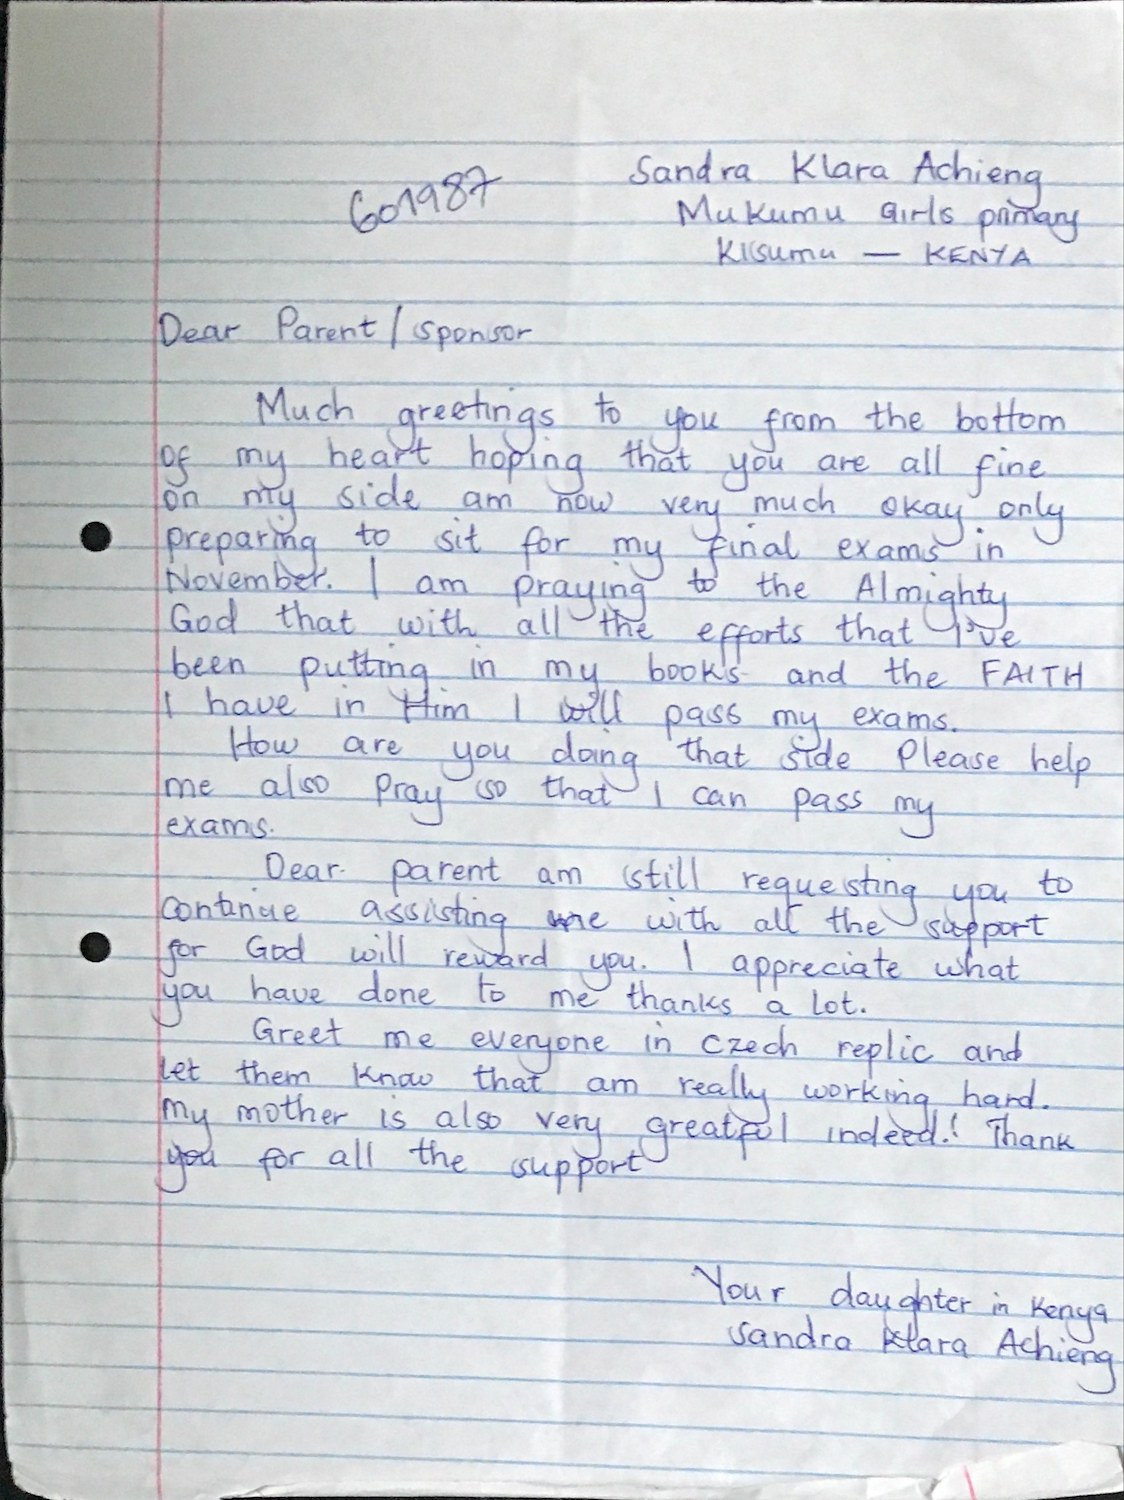 Sandra Klara Achieng
601987
Mukumu Girls primary
Kisumu — KENYA
Dear Parent / Sponsor
Much greetings to you from the bottom
of my heart hoping that you are all fine
on my side am now very much okay only
preparing to sit for my final exams in
November. I am praying to the Almighty
God that with all the efforts that I've
been putting in my books and the FAITH
I have in Him I will pass my exams.
How are you doing that side Please help
me also Pray so that I can pass my
exams.
Dear parent am still requesting you to
continue assisting me with all the support
for God will reward you. I appreciate what
you have done to me thanks a lot.
Greet me everyone in Czech replic and
let them know that am really working hard.
My mother is also very greatful indeed! Thank
you for all the support
Your daughter in Kenya
Sandra Klara Achieng